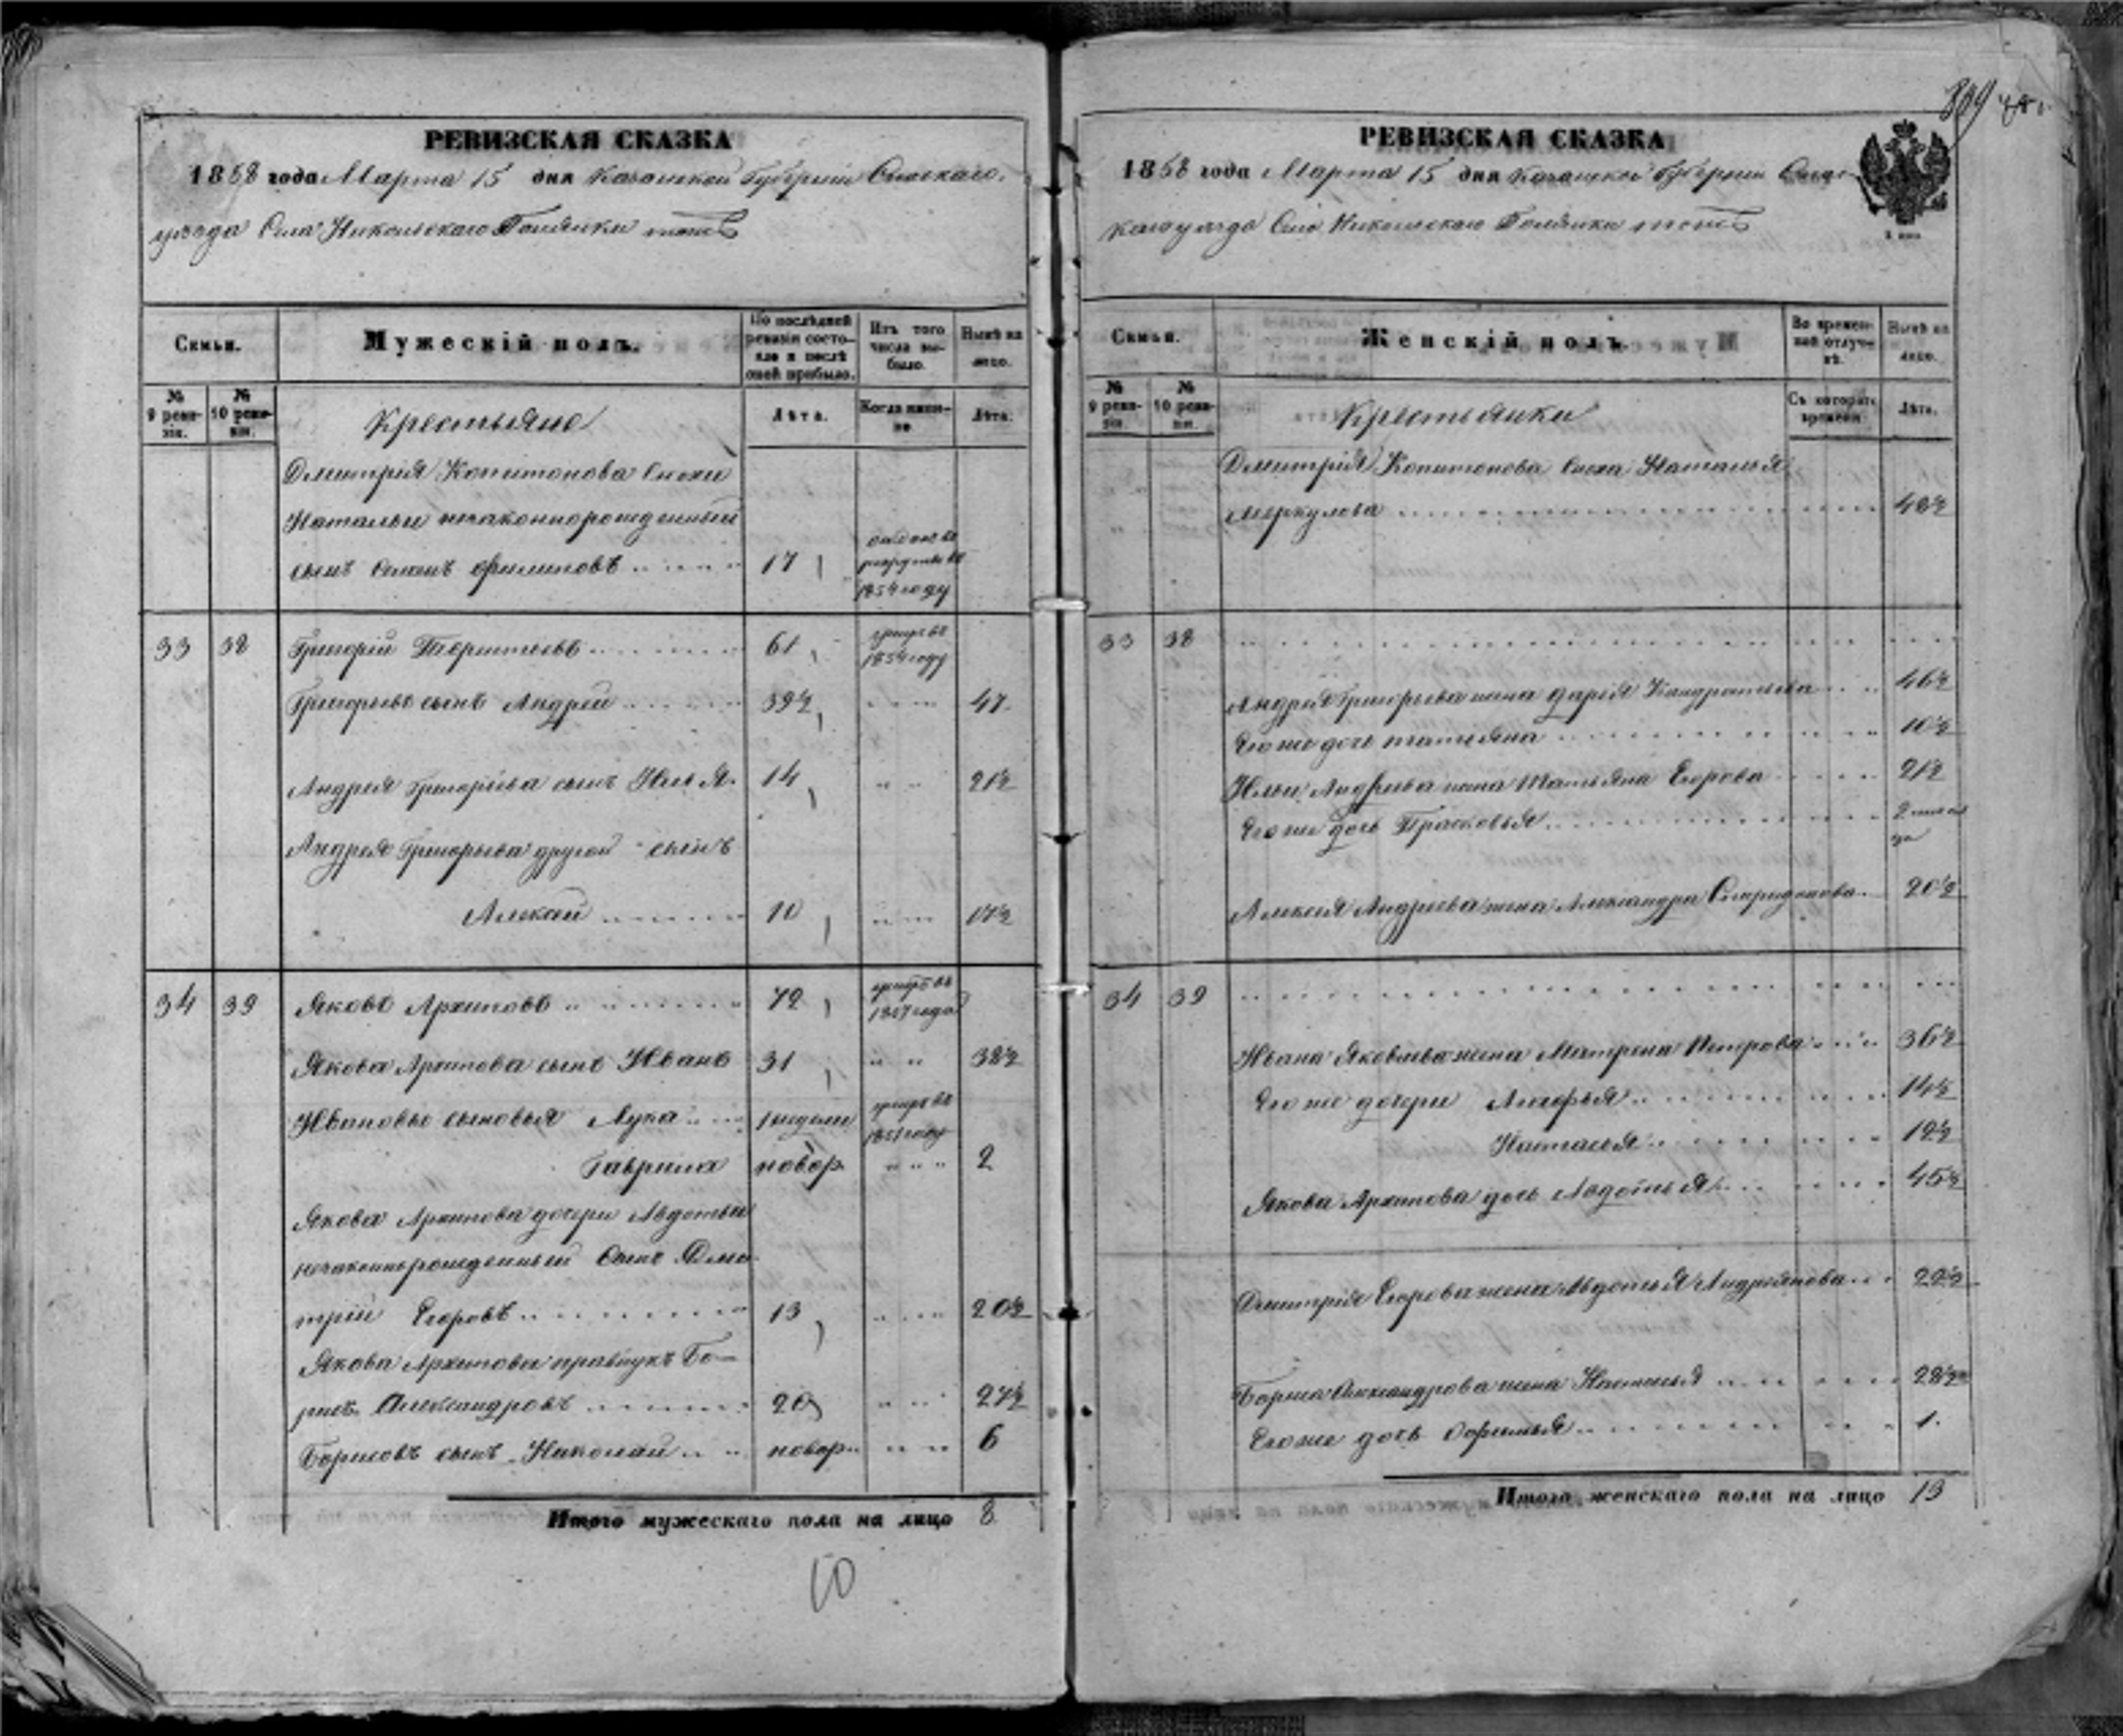 809
РЕВИЗСКАЯ СКАЗКА
1858 года Марта 15 дня Казанской Губерніи Спаскаго
уѣзда Села Никольскаго Полянки тожъ
Семьи.
Мужескій полъ.
По послѣдней ревизіи состояло и послѣ оной прибыло.
Изъ того числа выбыло.
Нынѣ на лицо.
№ 9 ревизіи.
№ 10 ревизіи.
Крестьяне
Лѣта.
Когда именно
Лѣта.
Дмитрія Копитонова снохи
Натальи незаконнорожденный
сынъ Филиповъ 17 отданъ въ рекруты въ 1854 году
33 38 Григорій 61 умеръ въ 1854 году
Григорьевъ сынъ Андрей 39½ 47
Андрея Григорьева сынъ Илья 14 21½
Андрея Григорьева другой сынъ
Алексей 10 17½
34 39 Яковъ Архиповъ 72 умеръ въ 1857 года
Якова Архипова сынъ Иванъ 31 38½
Ивановы сыновья Лука 1 недели умеръ въ 1851 году
Гаврила новор. 2
Якова Архипова дочери Авдотьи
незаконнорожденный сынъ Дми
трій Егоровъ 13 20½
Якова Архипова правнукъ Бо-
рисъ Александровъ 20 27½
Борисовъ сынъ Николай новор. 6
Итого мужескаго пола на лицо 8
10
РЕВИЗСКАЯ СКАЗКА
1858 года Марта 15 дня Казанской Губерніи Спас
каго уѣзда Села Никольскаго Полянки тожъ
Семьи.
Женскій полъ.
Во временной отлучкѣ.
Нынѣ на лицо.
№ 9 ревизіи.
№ 10 ревизіи.
Крестьянки
Съ котораго времени
Лѣта.
Дмитрія Копитонова сноха Наталья
Меркулова 48½
33 38
Андрея Григорьева жена Дарья Кандратьева 46½
Его же дочь Татьяна 10½
Ильи Андреева жена Татьяна Егорова 21½
Его же дочь Прасковья 2
Алексея Андреева жена Александра Спиридонова 20½
34 39
Ивана Яковлева жена Матрена Петрова 36½
Его же дочери 14½
Настасья 12½
Якова Архипова дочь Авдотья 45½
Дмитрія Егорова жена Авдотья Андреянова 22½
Бориса Александрова жена 28½
Его же дочь 1
Итого женскаго пола на лицо 13